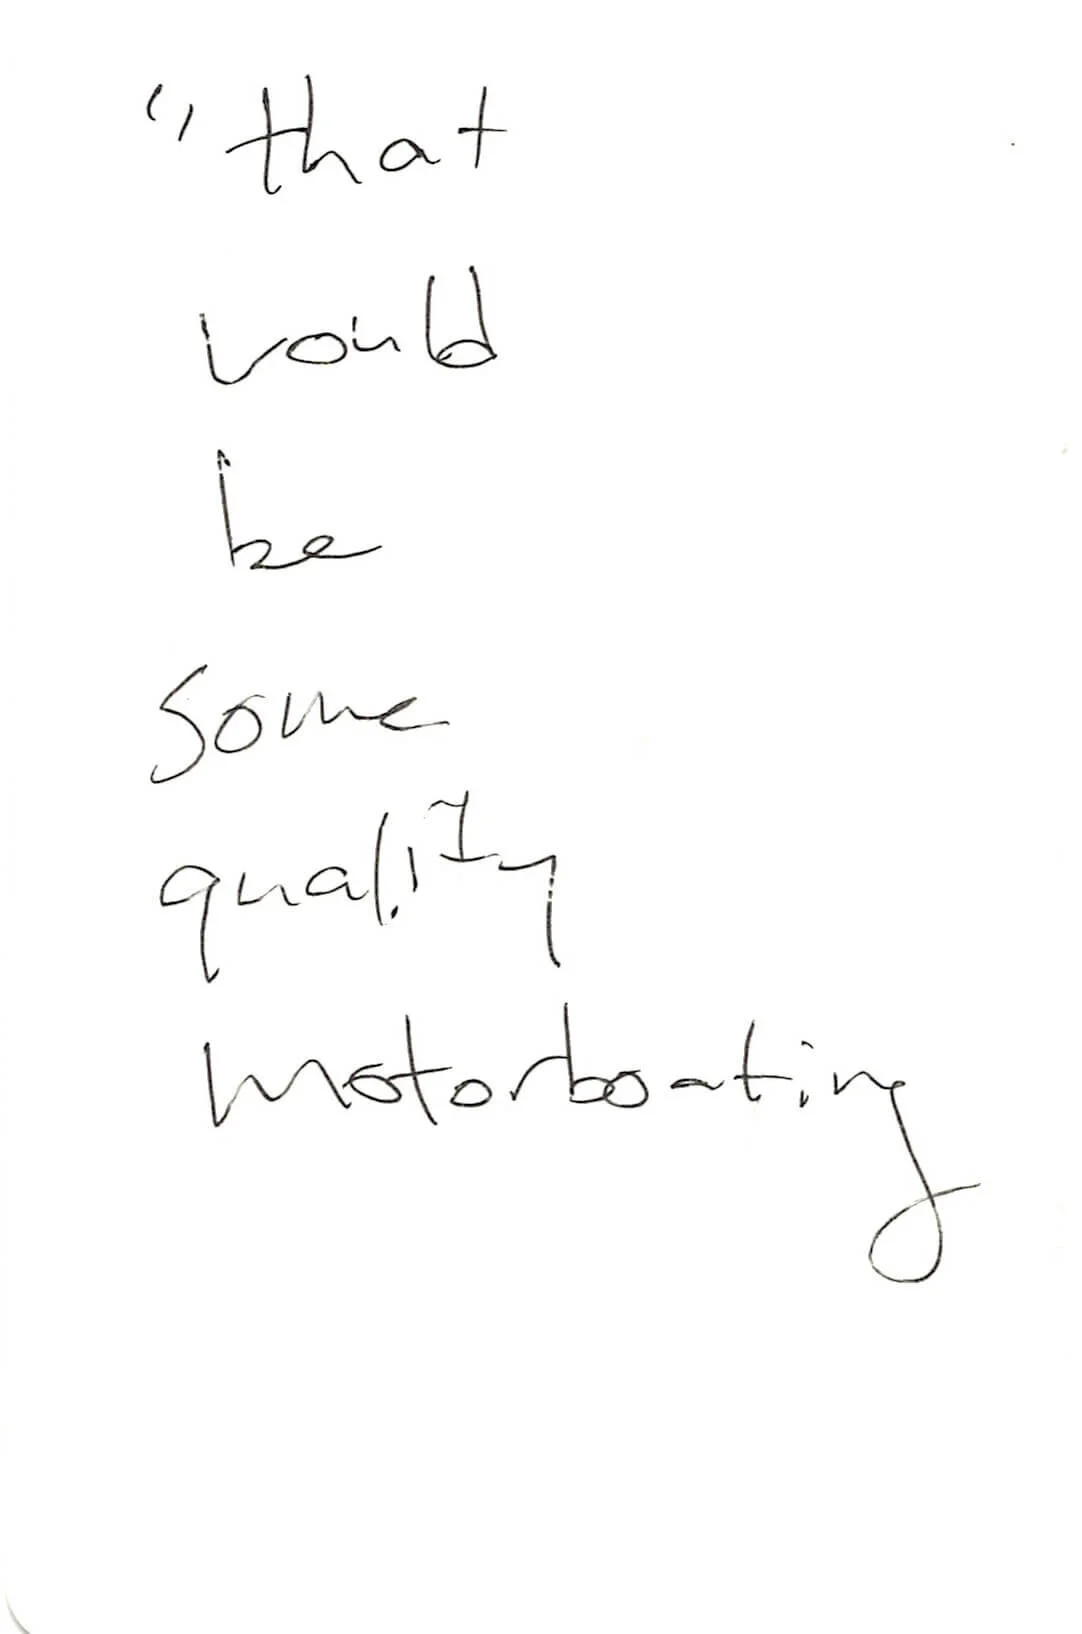 "that
would
be
some
quality
motorboating